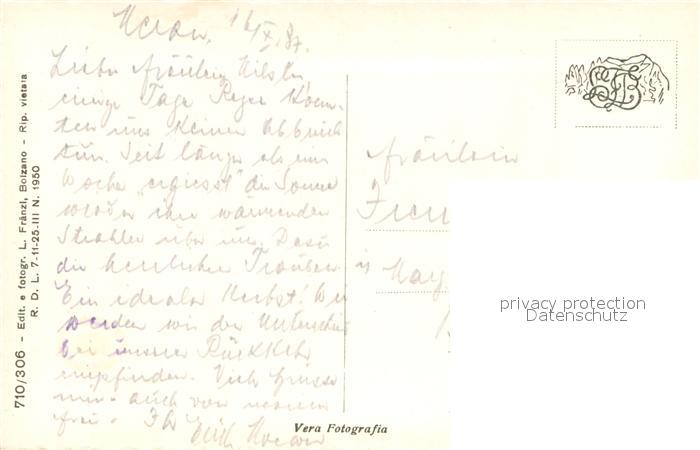 Meran, 16/X.37.
Liebes Fräulein
einige Tage Regen konn-
ten uns keinen Abbruch
tun. Seit länger als eine
Woche „ergiesst" die Sonne
wieder ihre wärmenden
Strahlen über uns. Dazu
die herrlichen Trauben.
Ein idealer Herbst! Wie
werden wir den Unterschied
bei unserer Rückkehr
empfinden. Viele Grüsse
auch von meiner
Frau. Ihr
Fräulein
in
May
privacy protection
Datenschutz
Vera Fotografia
710/306 - Edit. e fotogr. L. Fränzl, Bolzano - Rip. vietata
R. D. L. 7-11-25-III N. 1950